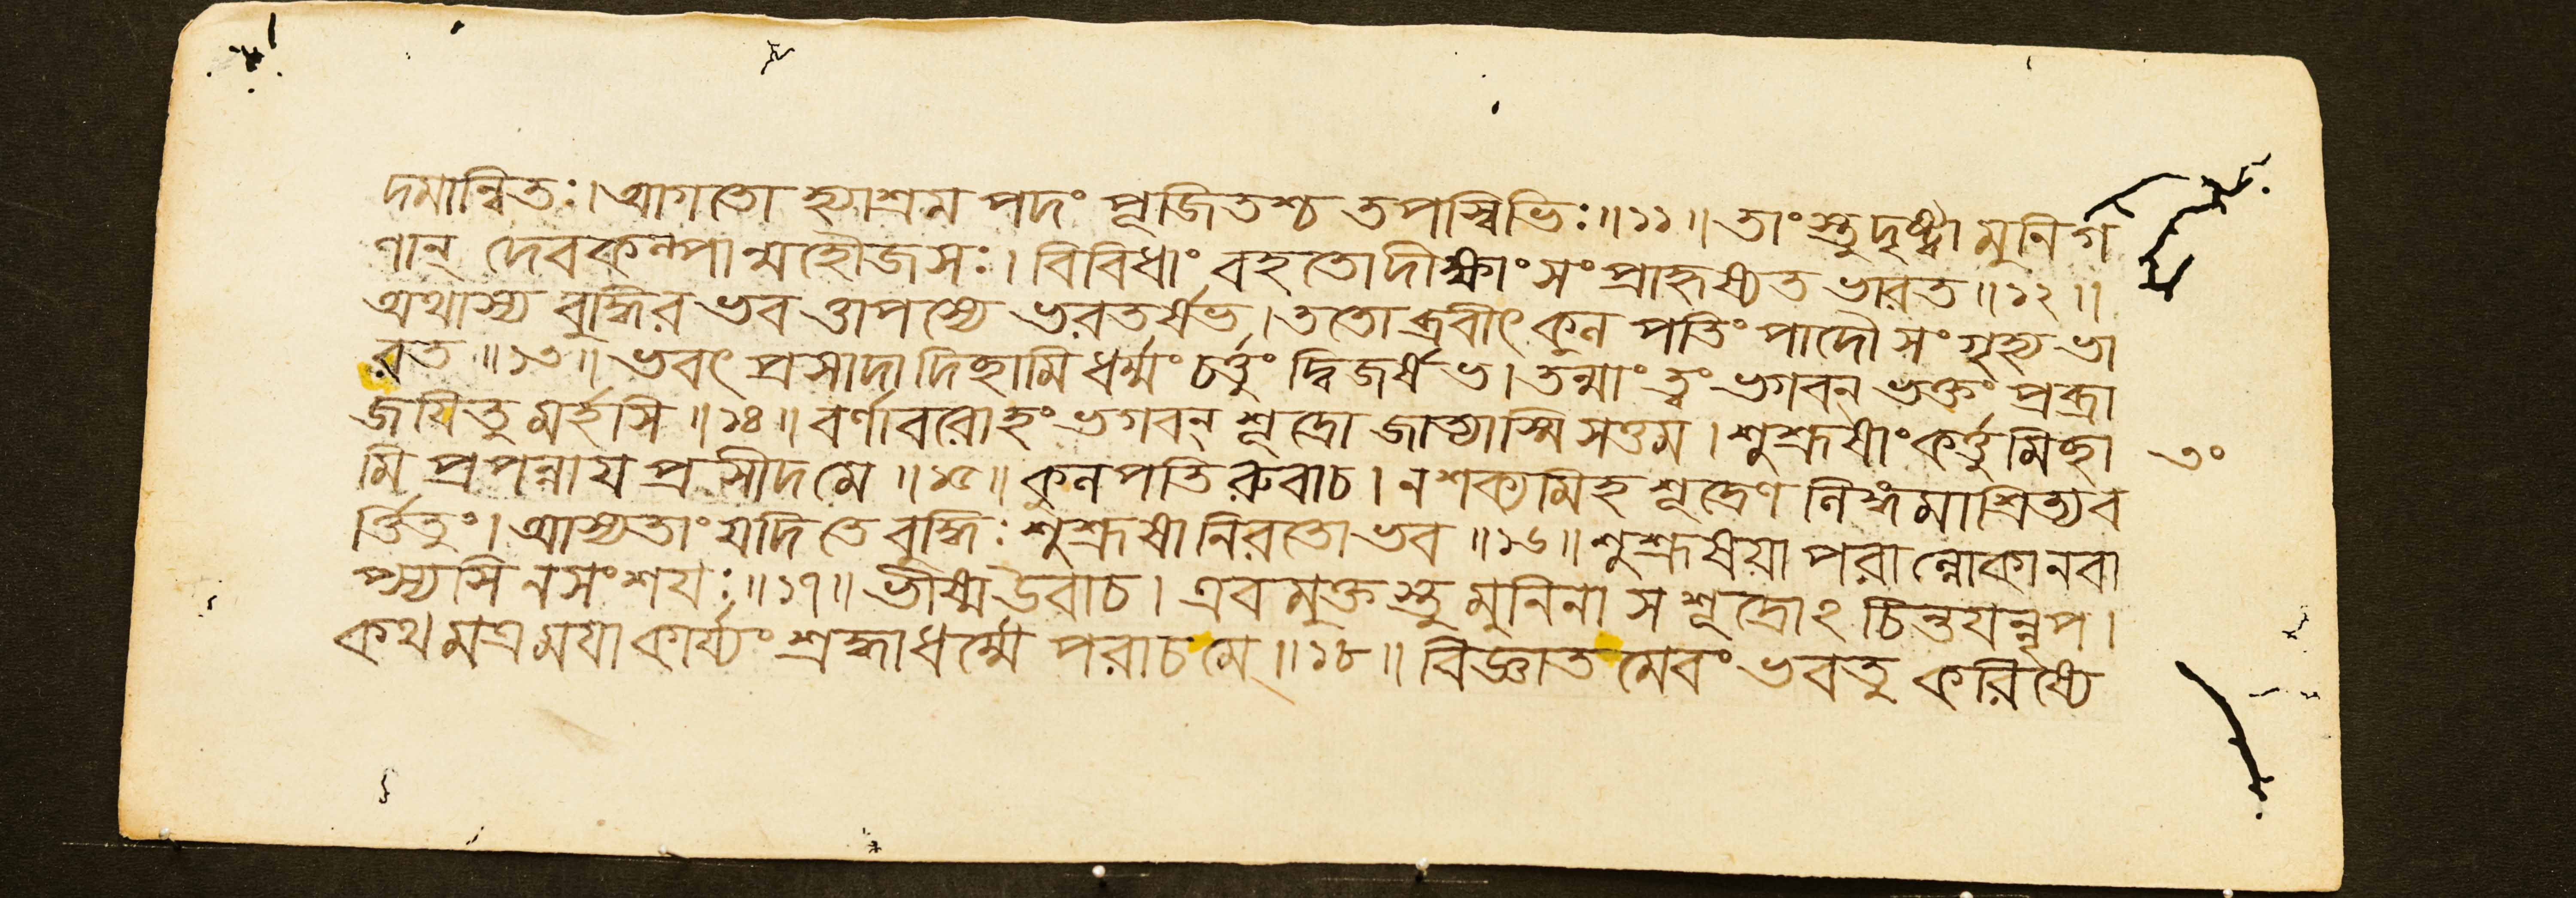 দমান্বিতঃ। আগতো হ্যাশ্রম পদং পূজিতশ্চ তপস্বিভিঃ॥ ১১॥ তাংস্তু দৃষ্ট্বা মুনিগ
ণান্ দেবকল্পান্মহৌজসঃ। বিবিধাং বহতো দীক্ষাং সংপ্রাহৃষ্যত ভারত॥ ১২॥
অথাস্য বুদ্ধিরভবত্তাপস্যে ভরতর্ষভ। ততোব্রবীৎ কুলপতিং পাদৌ সংগৃহ্য ভা
রত॥ ১৩॥ ভবৎ প্রসাদাদিচ্ছামি ধর্ম্মং চর্ত্তুং দ্বিজর্ষভ। তন্মাং ত্বং ভগবন্ ভক্তং প্রব্রা
জয়িতুমর্হসি॥ ১৪॥ বর্ণাবরোহং ভগবন্ শূদ্রো জাত্যাস্মি সত্তম। শুশ্রূষাং কর্ত্তুমিচ্ছা
৩০
মি প্রপন্নায় প্রসীদ মে॥ ১৫॥ কুলপতিরুবাচ। ন শক্যমিহ শূদ্রেণ লিঙ্গমাশ্রিত্য ব
র্ত্তিতুং। আস্যতাং যদি তে বুদ্ধিঃ শুশ্রূষানিরতো ভব॥ ১৬॥ শুশ্রূষয়া পরাল্লোকানবা
প্স্যসি ন সংশয়ঃ॥ ১৭॥ ভীষ্ম উবাচ। এবমুক্তস্তু মুনিনা স শূদ্রোঽচিন্তয়ন্নৃপ।
কথমত্র ময়া কার্য্যং শ্রদ্ধা ধর্ম্মে পরা চ মে॥ ১৮॥ বিজ্ঞাতমেবং ভবতু করিষ্যে